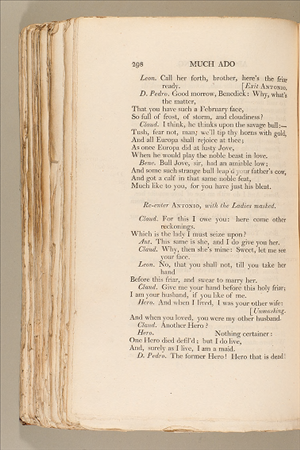 298 MUCH ADO
Leon. Call her forth, brother, here's the friar
ready. [Exit ANTONIO.
D. Pedro. Good morrow, Benedick: Why, what's
the matter,
That you have such a February face,
So full of frost, of storm, and cloudiness?
Claud. I think, he thinks upon the savage bull:—
Tush, fear not, man; we'll tip thy horns with gold,
And all Europa shall rejoice at thee;
As once Europa did at lusty Jove,
When he would play the noble beast in love.
Bene. Bull Jove, sir, had an amiable low;
And some such strange bull leap'd your father's cow,
And got a calf in that same noble feat,
Much like to you, for you have just his bleat.
Re-enter ANTONIO, with the Ladies masked.
Claud. For this I owe you: here come other
reckonings.
Which is the lady I must seize upon?
Ant. This same is she, and I do give you her.
Claud. Why, then she's mine: Sweet, let me see
your face.
Leon. No, that you shall not, till you take her
hand
Before this friar, and swear to marry her.
Claud. Give me your hand before this holy friar;
I am your husband, if you like of me.
Hero. And when I lived, I was your other wife:
[Unmasking.
And when you loved, you were my other husband.
Claud. Another Hero?
Hero. Nothing certainer:
One Hero died defil'd; but I do live,
And, surely as I live, I am a maid.
D. Pedro. The former Hero! Hero that is dead!